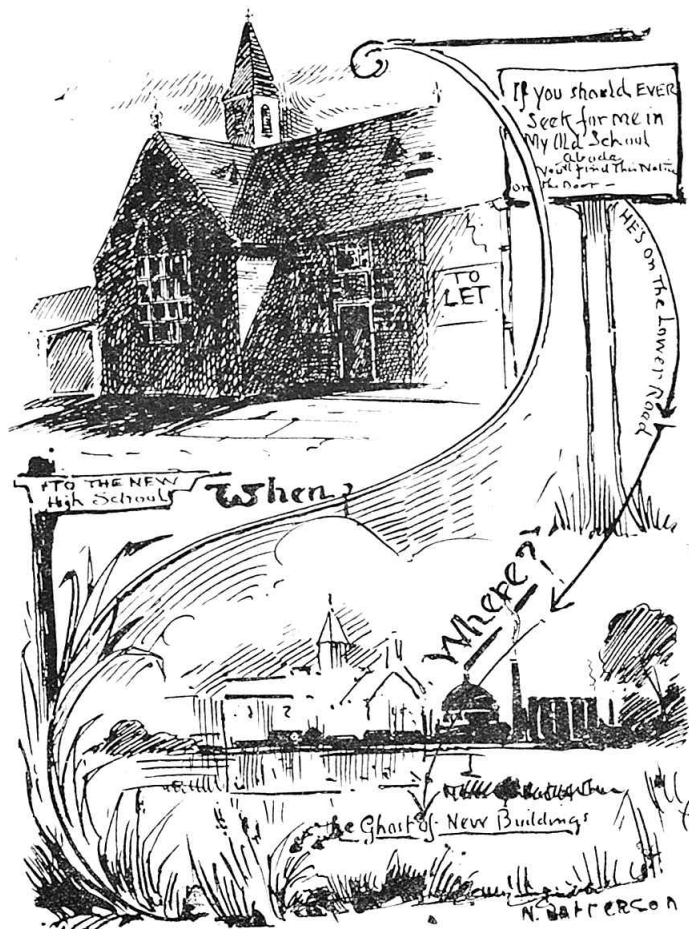 If you should EVER
Seek for me in
My Old School
abode
You'll find This Notice
on the Door —
HE'S on The Lower Road
TO
LET
TO THE NEW
High School
When?
Where?
the Ghost of New Buildings
N. BATTERSON